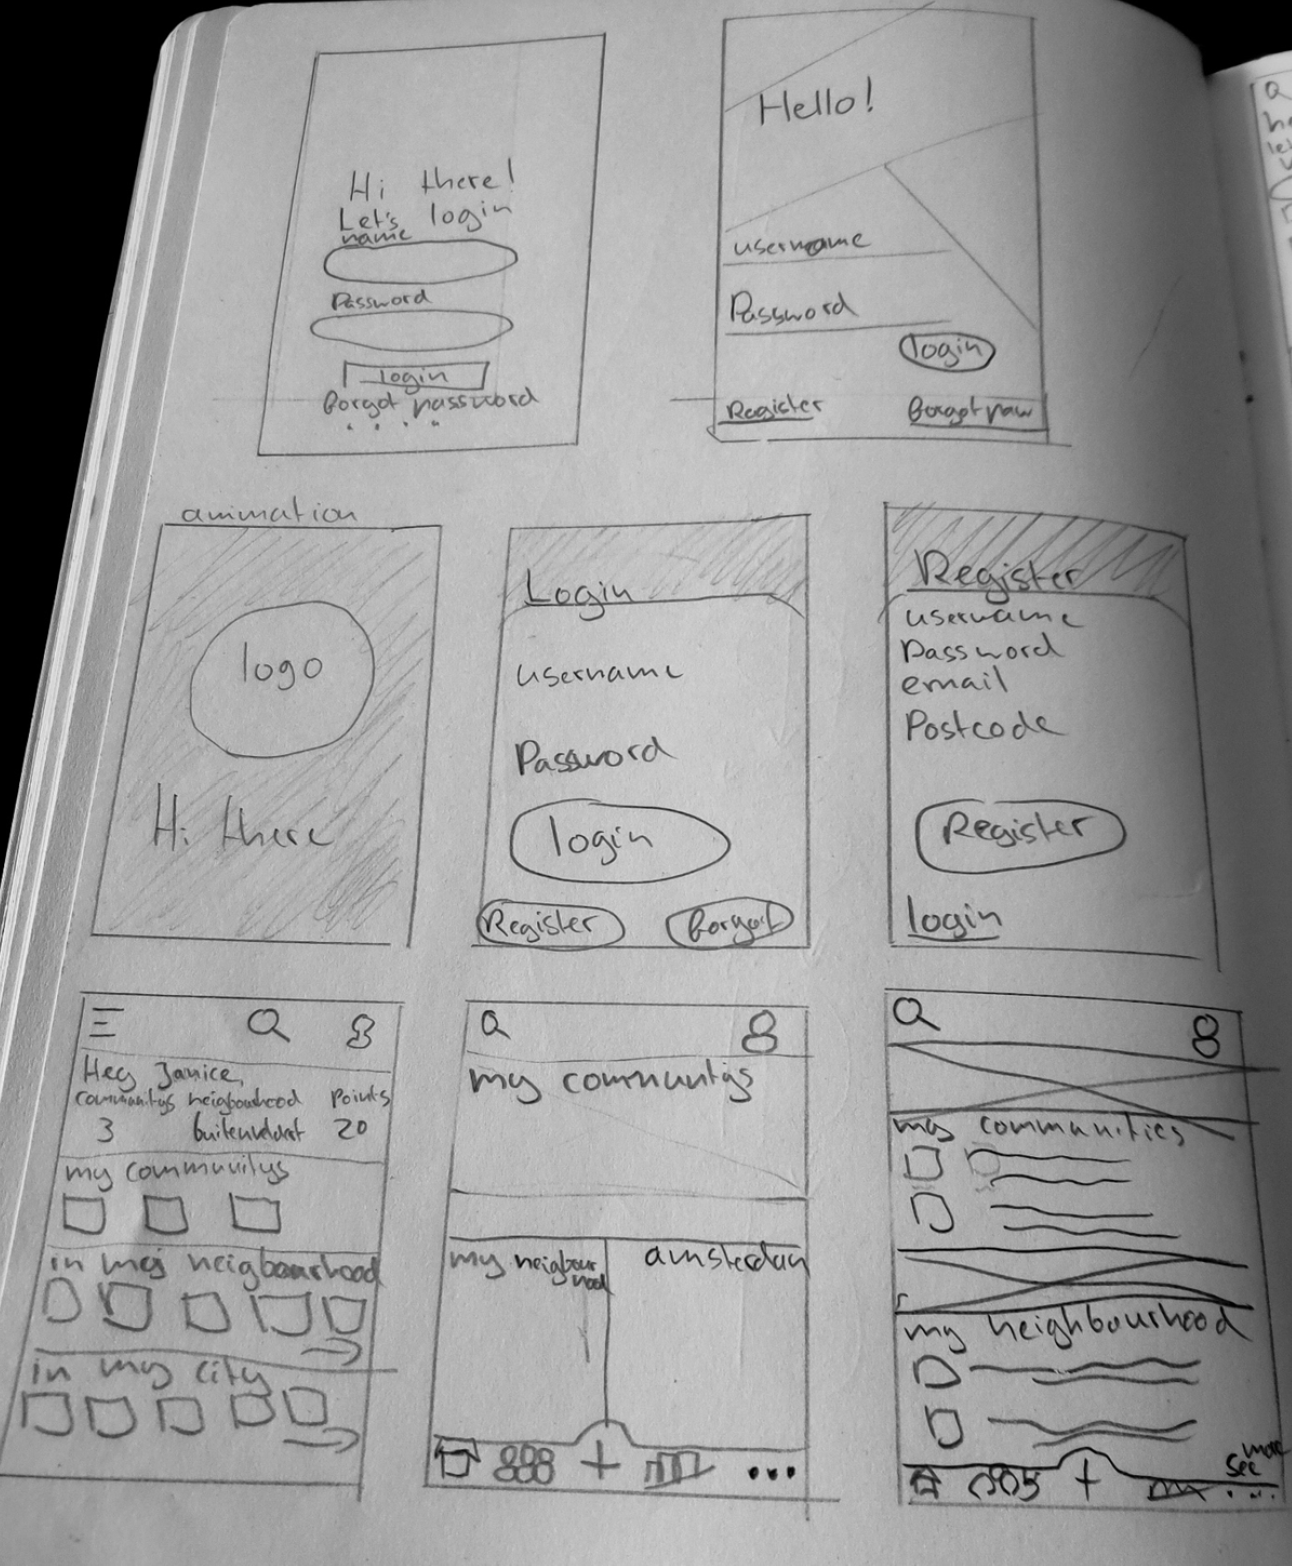 Hi there!
Let's login
name
Password
login
Forgot password
Hello!
username
Password
login
Register
Forgot paw
animation
logo
Hi there
Login
username
Password
login
Register
Forgot
Register
username
Password
email
Postcode
Register
login
Hey Janice,
communitys neigbourhood Points
3 buitenveldert 20
my communitys
in my neigbourhood
in my city
my communitys
my neigbour
hood
amsterdam
my communities
my neighbourhood
see more